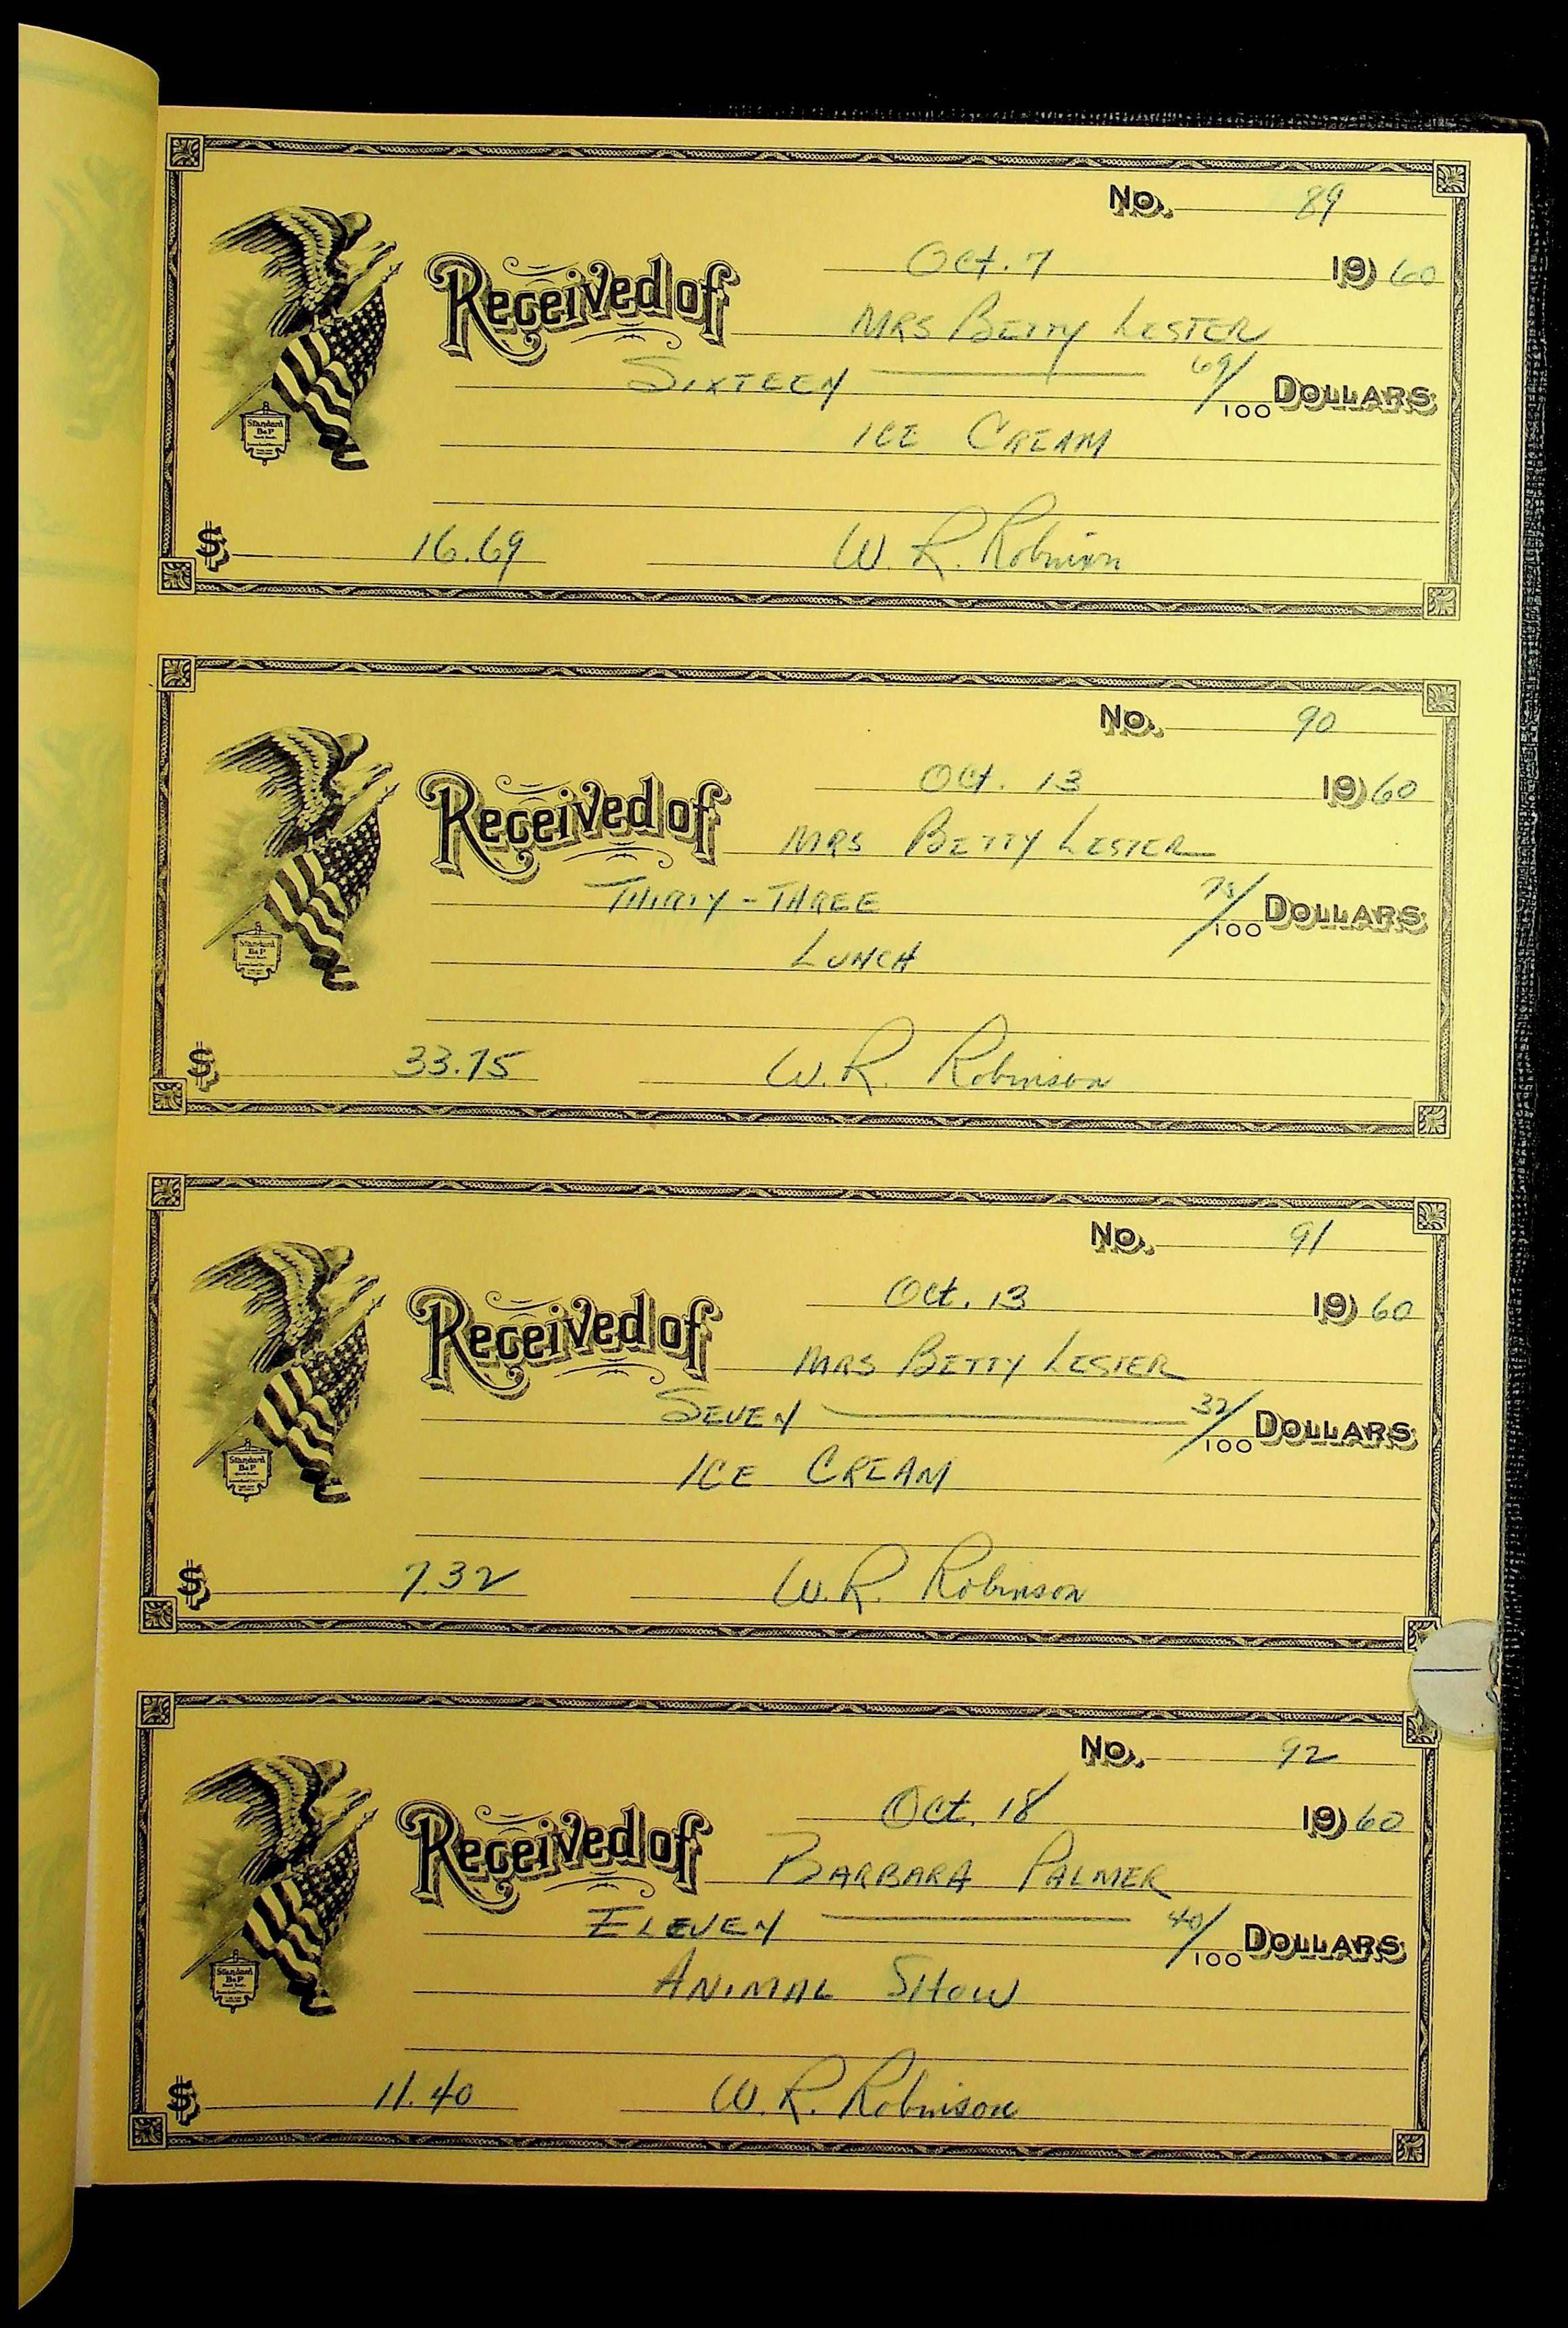 No. 89
Oct. 7 1960
Received of MRS BETTY LESTER
SIXTEEN 69/100 DOLLARS
ICE CREAM
$ 16.69 W. R. Robinson
Standard
B&P
No. 90
Oct. 13 1960
Received of MRS BETTY LESTER
THIRTY-THREE 75/100 DOLLARS
LUNCH
$ 33.75 W. R. Robinson
Standard
B&P
No. 91
Oct. 13 1960
Received of MRS BETTY LESTER
SEVEN 32/100 DOLLARS
ICE CREAM
$ 7.32 W. R. Robinson
Standard
B&P
No. 92
Oct. 18 1960
Received of BARBARA PALMER
ELEVEN 40/100 DOLLARS
ANIMAL SHOW
$ 11.40 W. R. Robinson
Standard
B&P